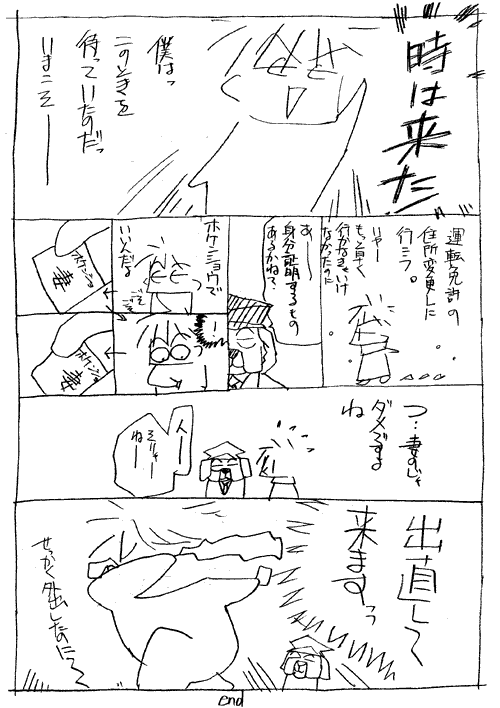 時は来た!
僕はっ
このときを
待っていたのだっ
いまこそ――
運転免許の
住所変更に
行こう。
いやー
もっと早く
行かなきゃいけ
なかったのに
あ――
身分証明するもの
あるかね?
ホケンショウで
いいんだよ
ごそごそ
ホケンショ
妻
!
ホケンショ
妻
つ…妻のじゃ
ダメですよ
ね
んー
そりゃー
ねー
出直して
来ますっ
せっかく外出したのにっ〜
end